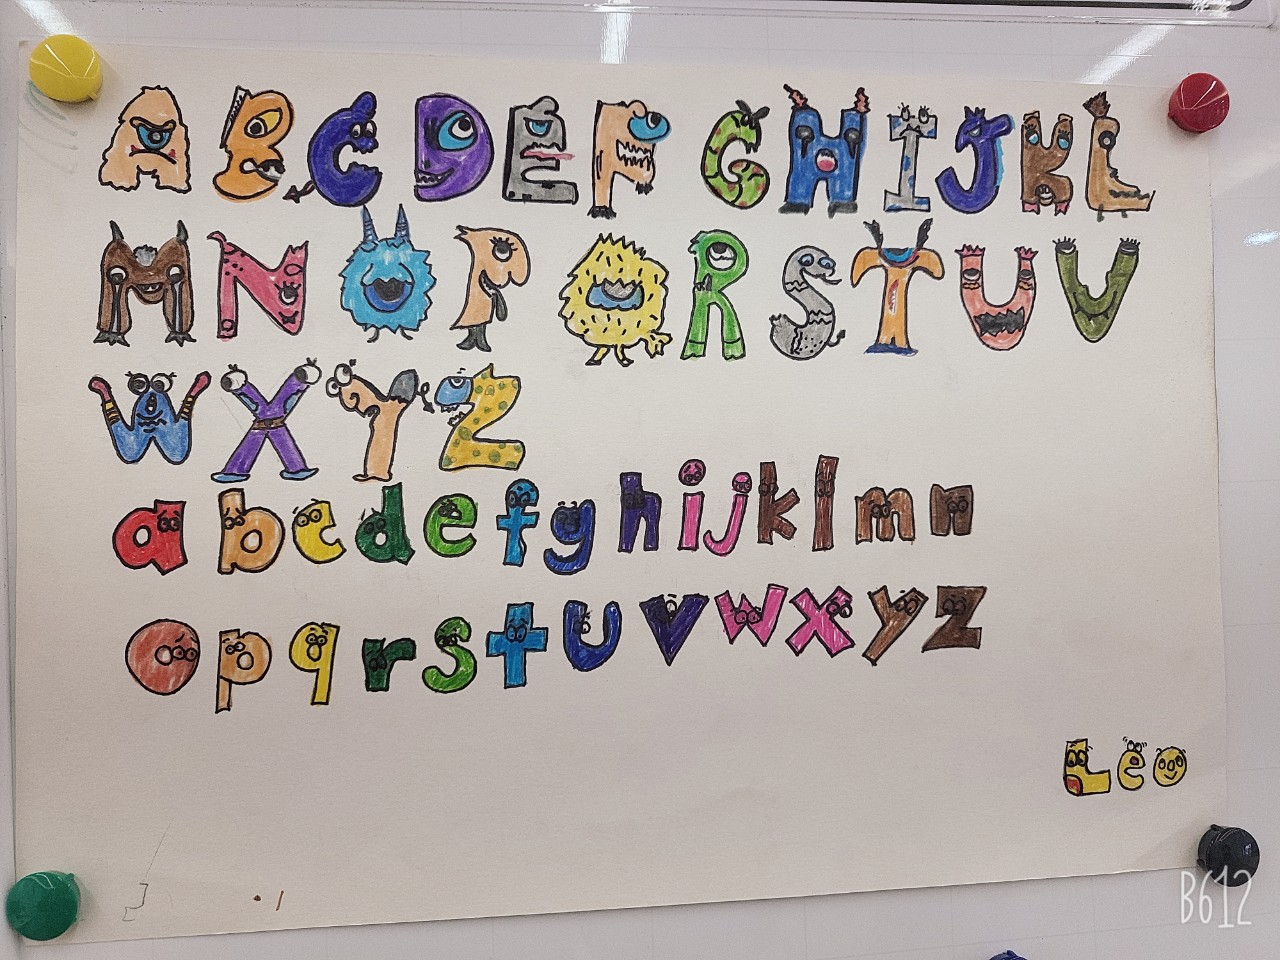 ABCDEFGHIJKL
MNOPQRSTUV
WXYZ
abcdefghijklmn
opqrstuvwxyz
Leo
B612